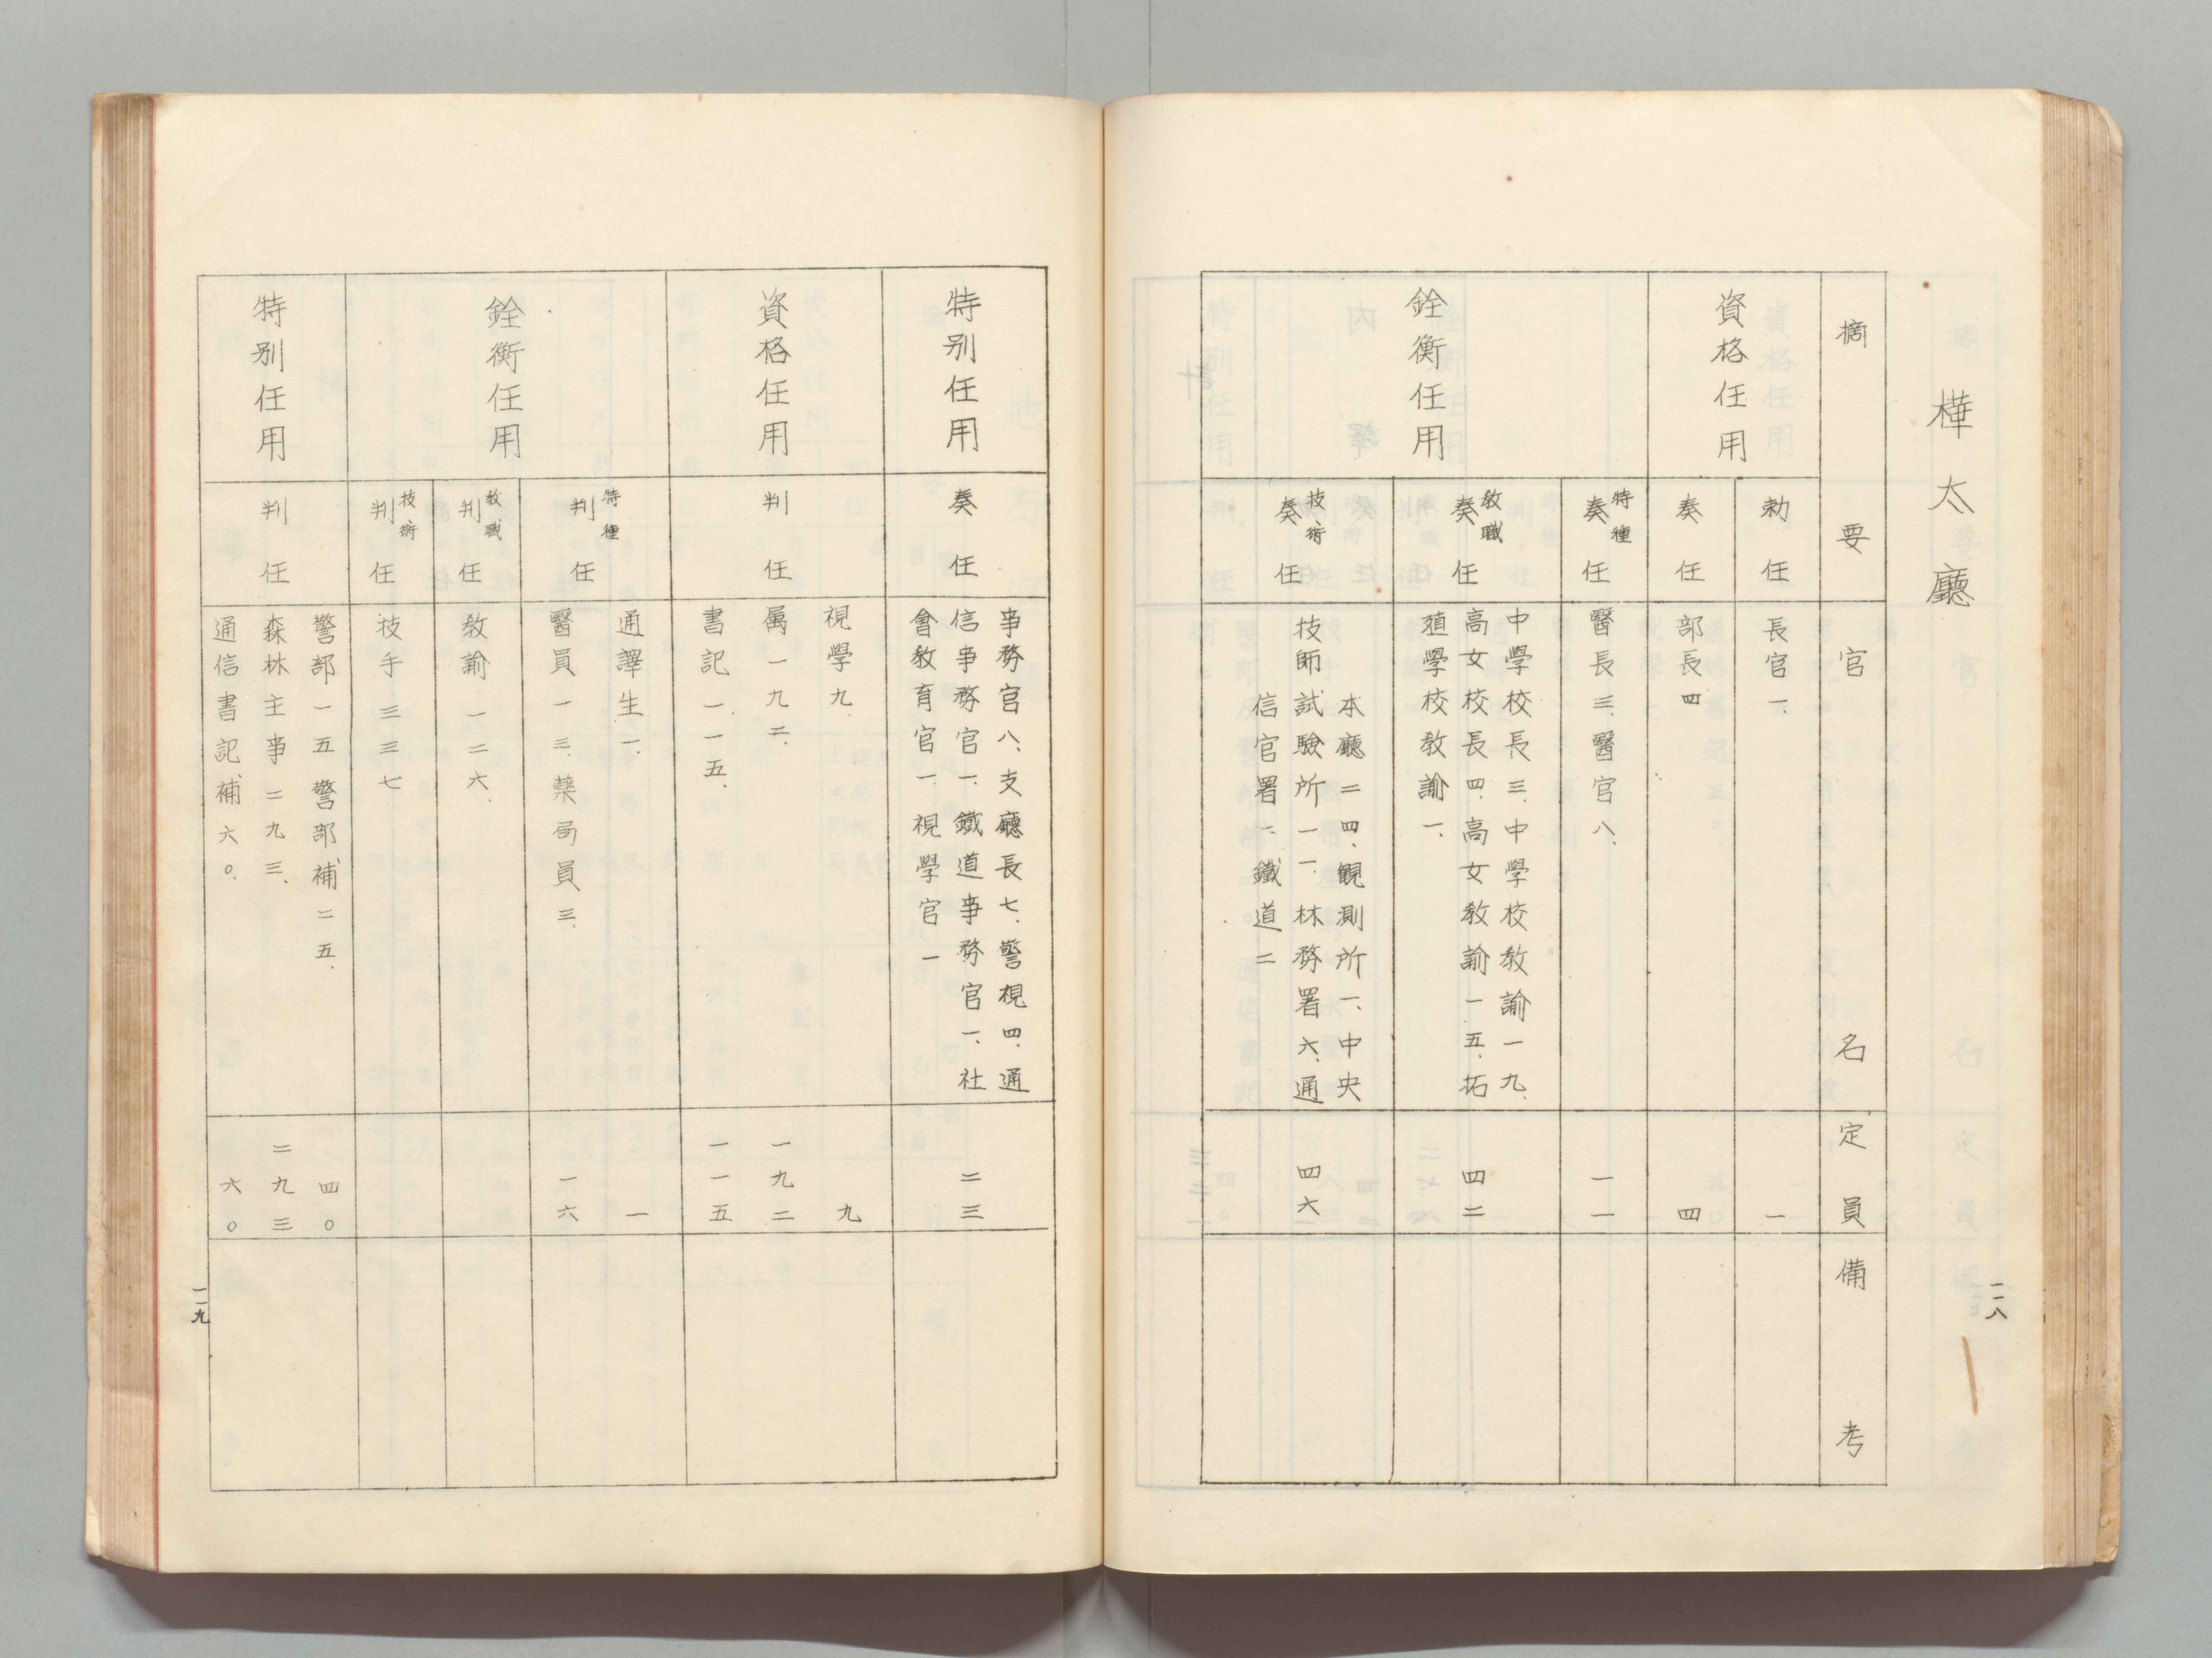 樺太廳
摘要
官名
定員
備考
資格任用
勅任
長官一、
一
奏任
部長四
四
銓衡任用
特種
奏任
醫長三、醫官八、
一一
教職
奏任
中學校長三、中學校教諭一九、
高女校長四、高女教諭一五、拓
殖學校教諭一、
四二
技術
奏任
本廳二四、観測所一、中央
技師試驗所一一、林務署六、通
信官署一、鐵道二
四六
一一八
特別任用
奏任
事務官八、支廳長七、警視四、通
信事務官一、鐵道事務官一、社
會教育官一、視學官一
二三
資格任用
判任
視學九、
九
属一九二、
一九二
書記一一五、
一一五
銓衡任用
特種
判任
通譯生一、
一
醫員一三、藥局員三、
一六
教職
判任
教諭一二六、
技術
判任
技手三三七
特別任用
判任
警部一五警部補二五、
四〇
森林主事二九三、
二九三
通信書記補六〇、
六〇
一一九